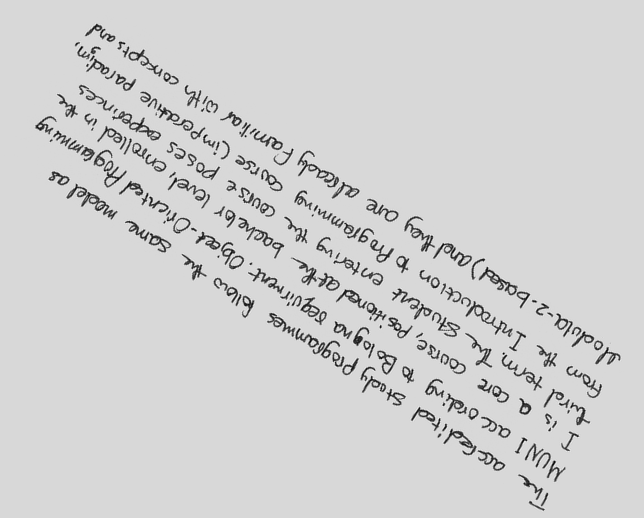 The accredited study programmes follow the same model as
MUNI according to Bologna requirment. Object-Oriented Programming
I is a core course, positioned at the bachelor level, enrolled in the
third term. The student entering the course poses experinces
from the Introduction to Programming course (imperative paradim,
Modula-2-based) and they are already familiar with concepts and